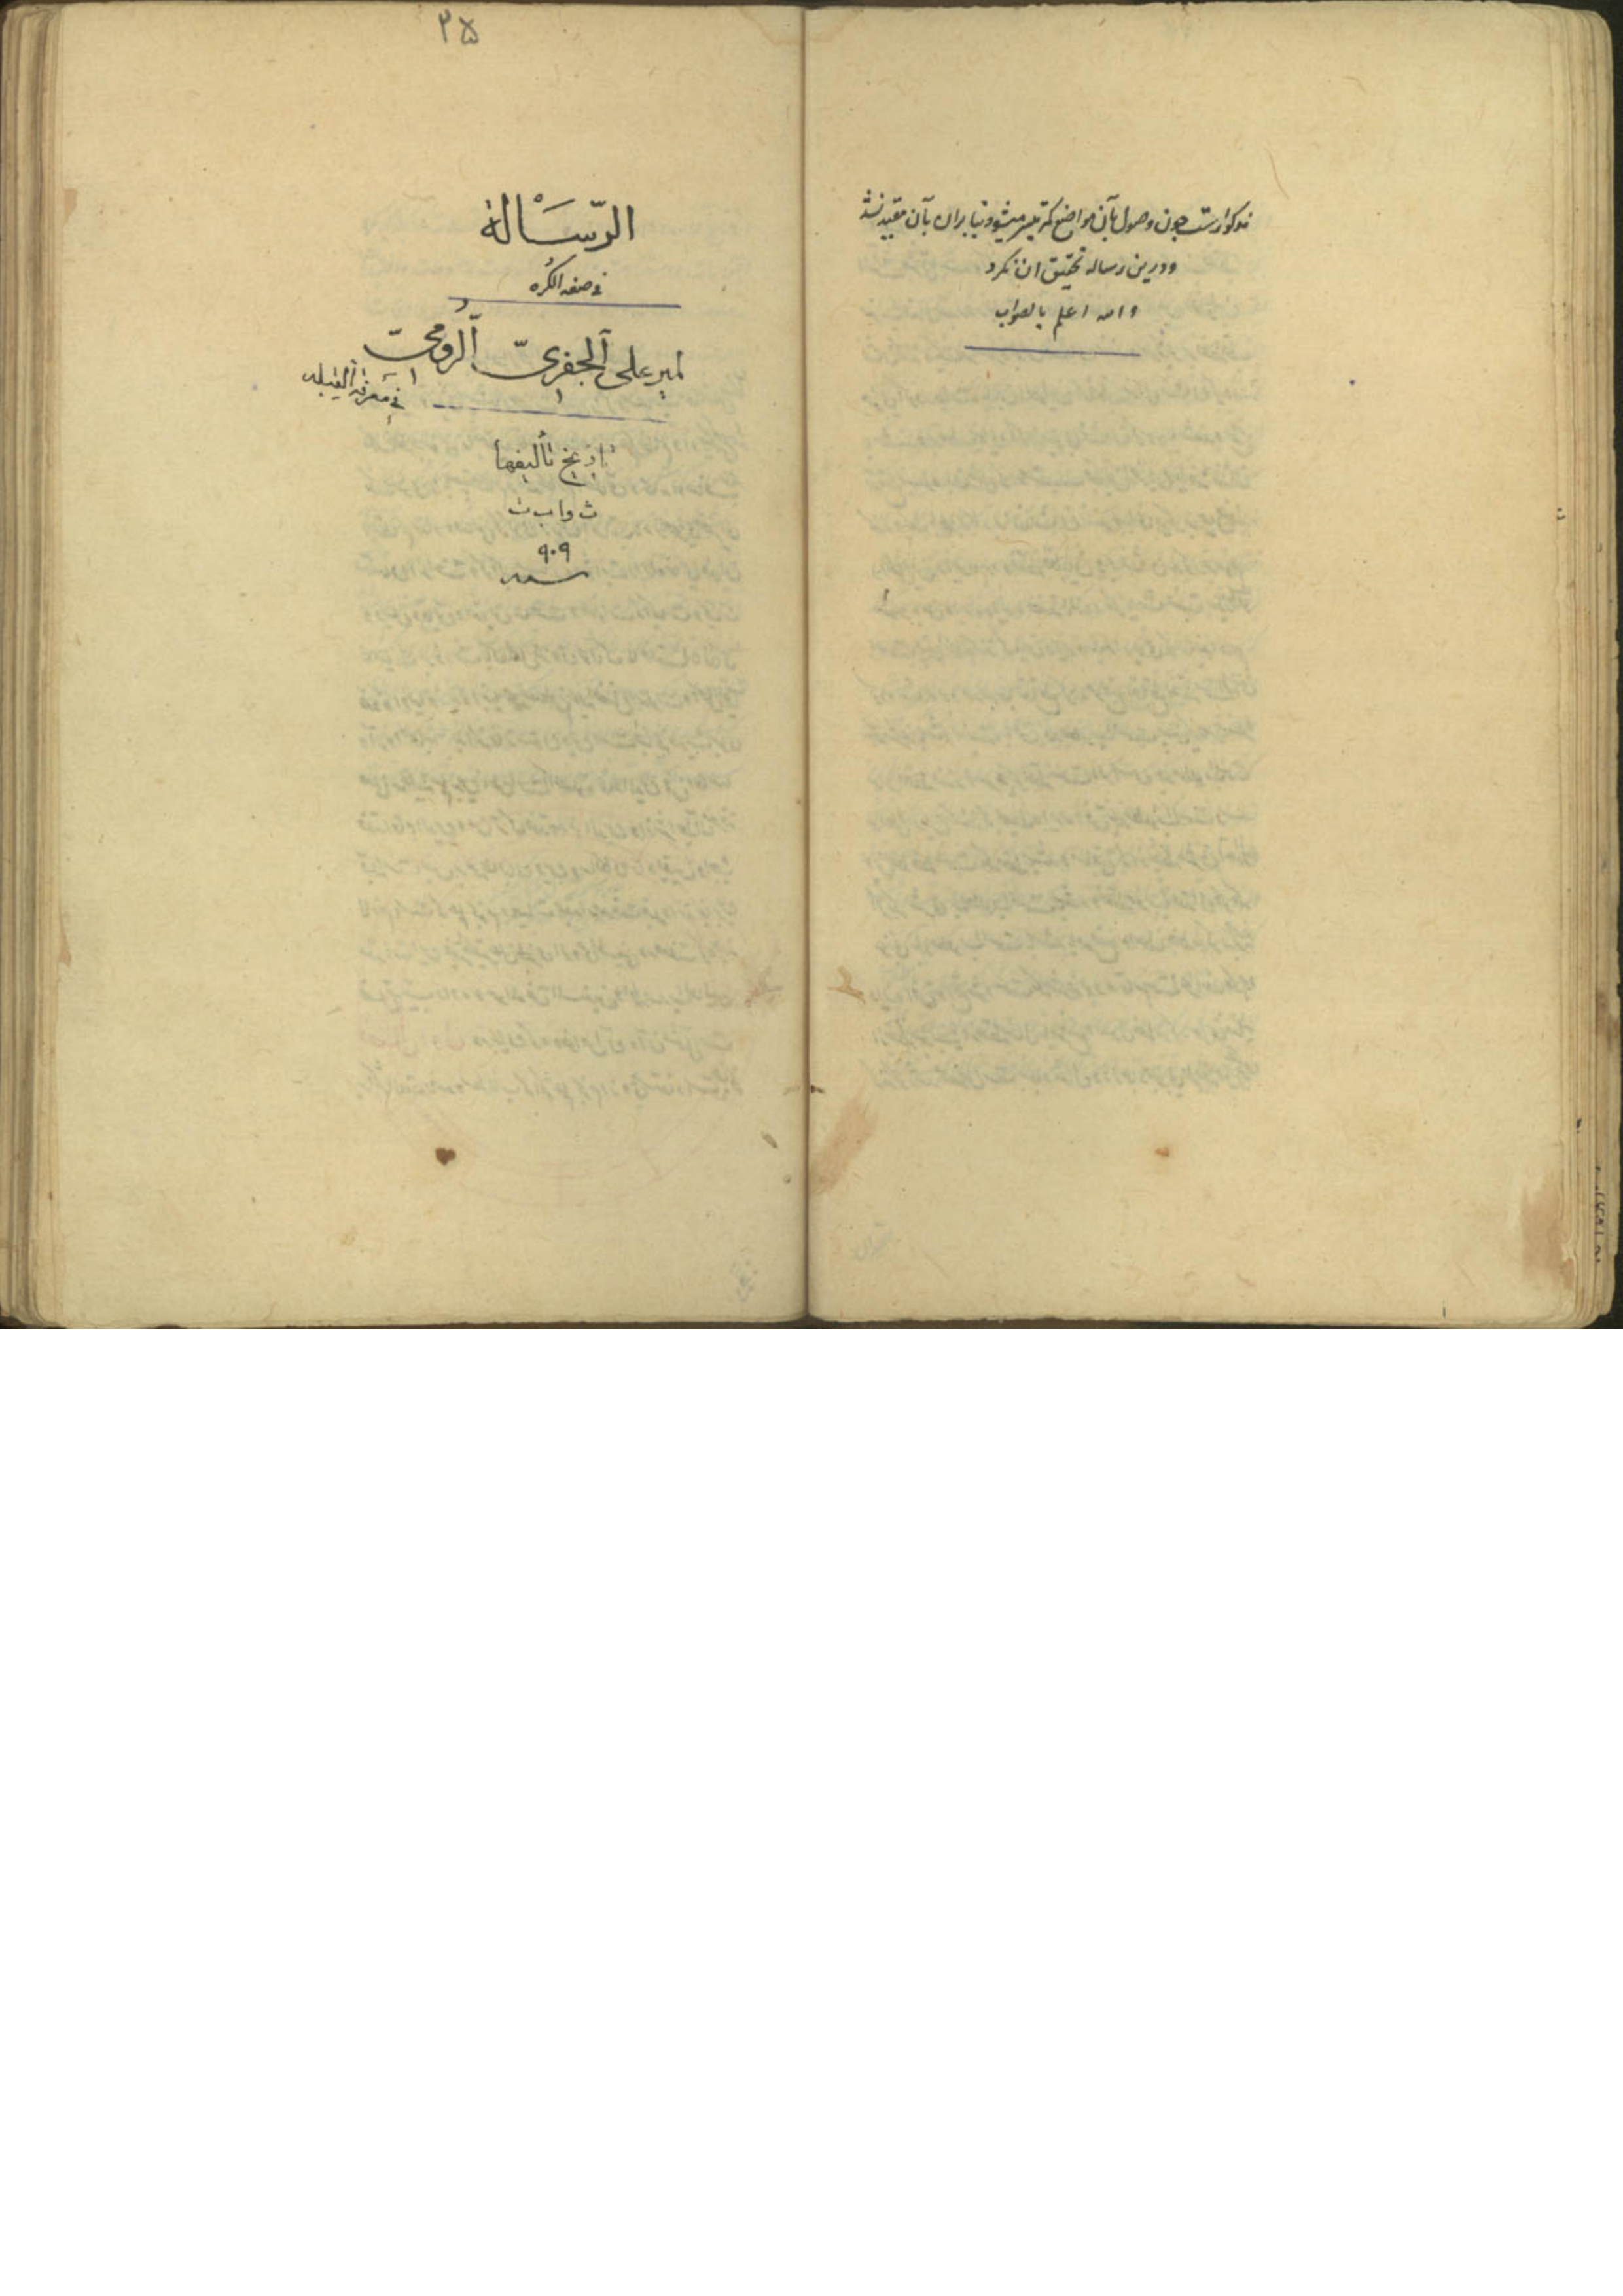 مذکوراست چون وصول بآن مواضع کمتر میسر میشود بنابران بآن مقید نشد
ودرین رساله تحقیق ان نکرد
والله اعلم بالصواب
۳۵
الرّسَالة
فی صفة الكره
لمیر علی الجفری الرومی
فی معرفة القبله
تاریخ تألیفها
ث واب ث
۹۰۹
سنه